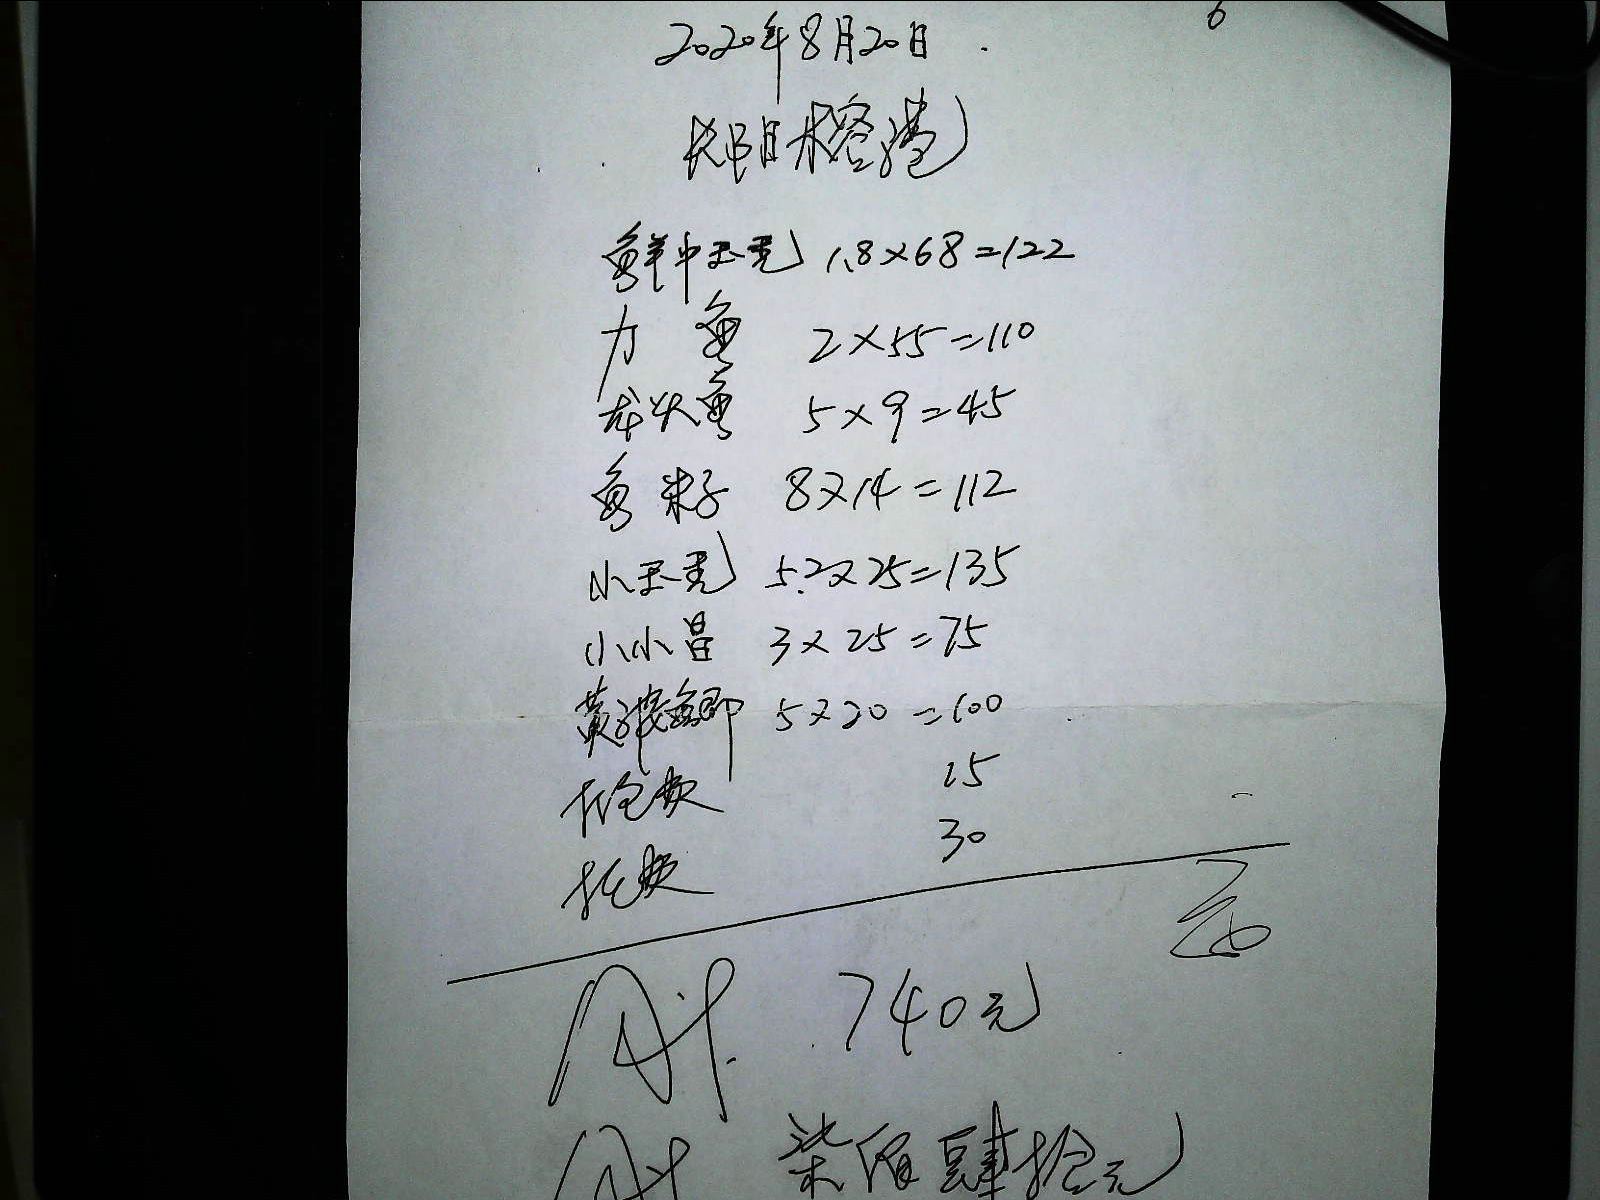 6
2020年8月20日
鲜中玉秃 1.8×68=122
力鱼 2×55=110
龙头鱼 5×9=45
鱼籽 8×14=112
小玉秃 5.2×25=135
小小昌 3×25=75
黄 鱼 5×20=100
打包费 15
托费 30
合计 740元
合计 柒佰肆拾元